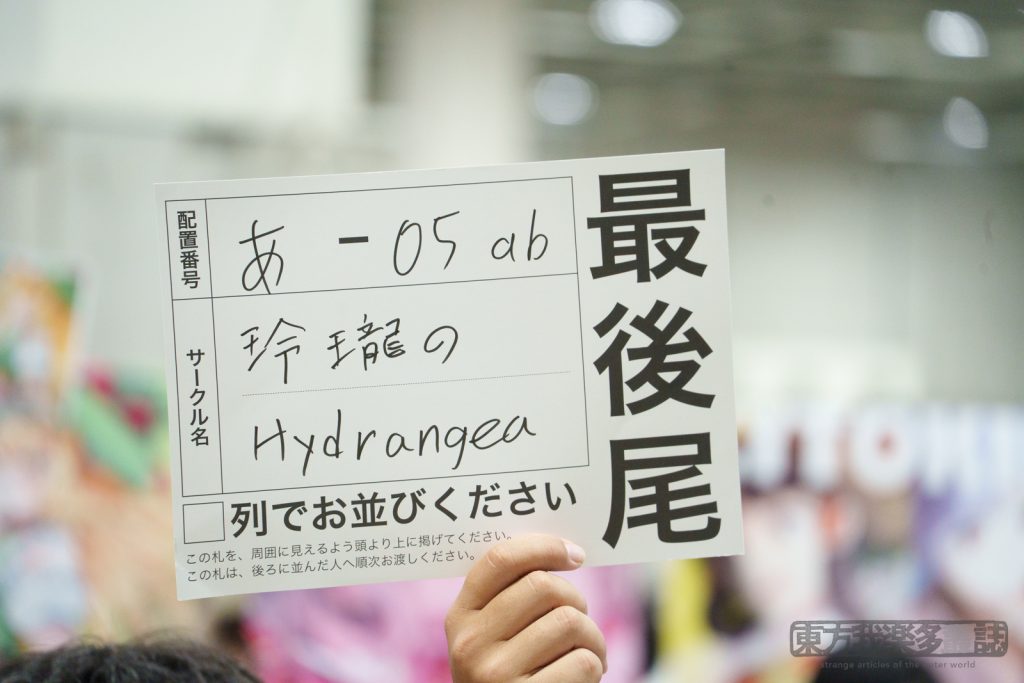 最後尾
配置番号
あ - 05 ab
サークル名
玲瓏の
Hydrangea
列でお並びください
この札を、周囲に見えるよう頭より上に掲げてください。
この札は、後ろに並んだ人へ順次お渡しください。
東方我楽多叢誌
strange articles of the outer world